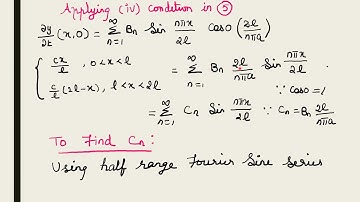 Applying (iv) condition in ⑤
∂y/∂t (x,0) = ∞ Σ n=1 Bn Sin nπx/2l cos0 (2l/nπa)
{ cx/l , 0<x<l = ∞ Σ n=1 Bn 2l/nπa Sin nπx/2l
c/l (2l-x), l<x<2l ∵ cos0=1
= ∞ Σ n=1 Cn Sin nπx/2l ∵ Cn = Bn 2l/nπa
To Find Cn :
Using half range Fourier Sine Series